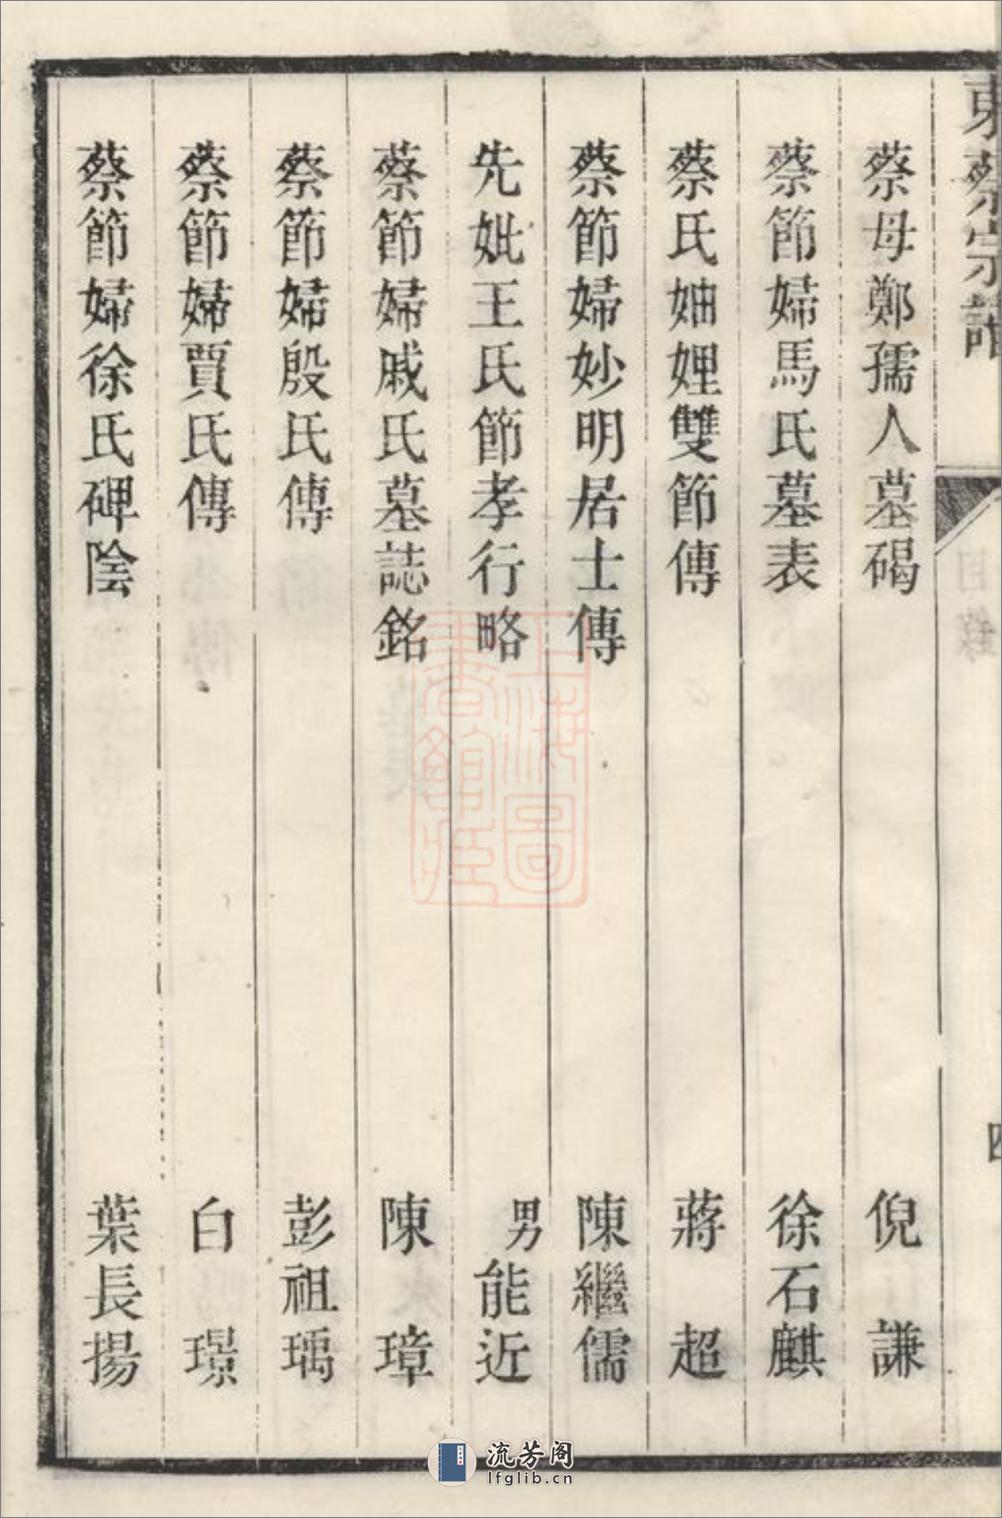 東蔡宗譜
目錄
四
蔡母鄭孺人墓碣 倪謙
蔡節婦馬氏墓表 徐石麒
蔡氏妯娌雙節傳 蔣超
蔡節婦妙明居士傳 陳繼儒
先妣王氏節孝行略 男能近
蔡節婦戚氏墓誌銘 陳璋
蔡節婦殷氏傳 彭祖瑀
蔡節婦賈氏傳 白璟
蔡節婦徐氏碑陰 葉長揚
上海圖書館藏
流芳阁
lfglib.cn